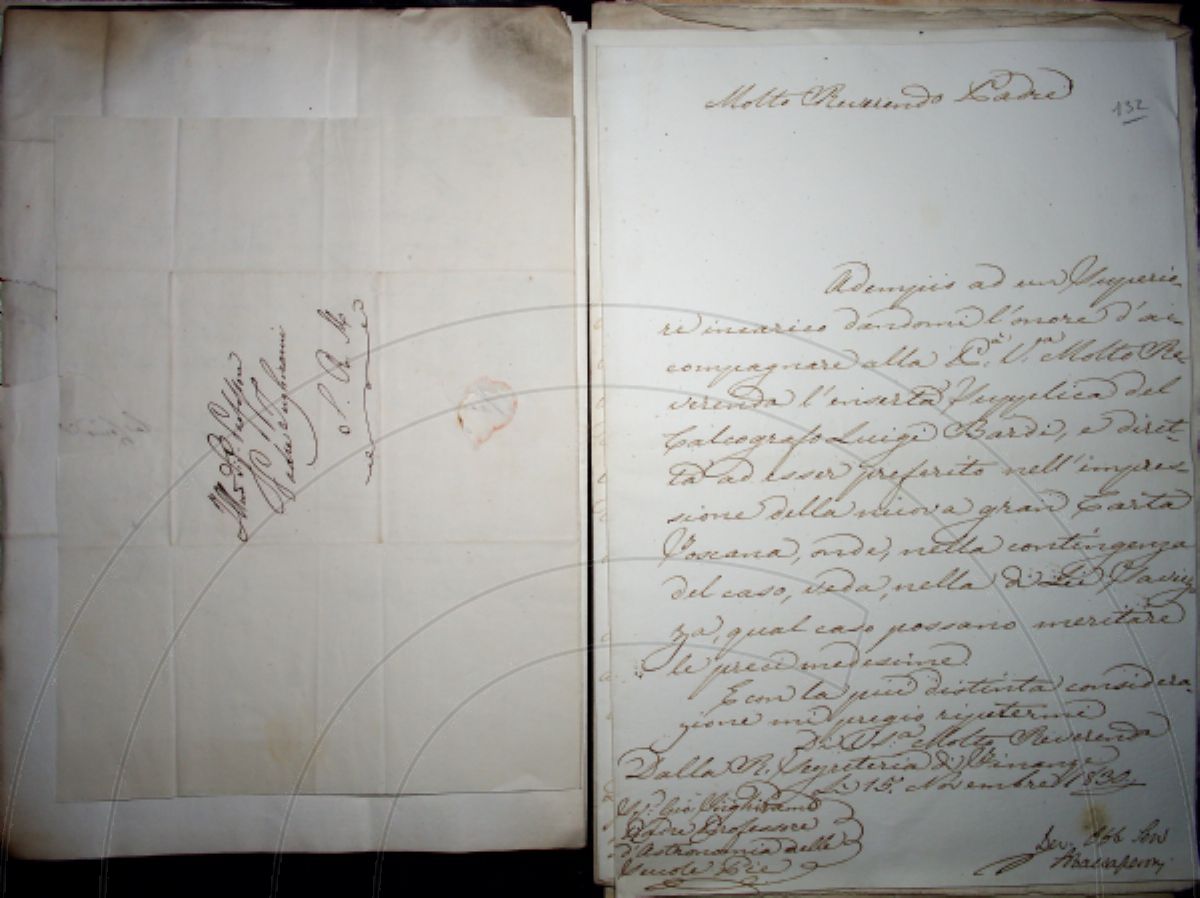 Padre Inghirami
Molto Reverendo Padre
132
Adempio ad un Superio-
re incarico dandomi l'onore d'ac-
compagnare alla P.ª V.ª Molto Re-
verenda l'inserta Supplica del
Calcografo Luigi Bardi, e diret-
ta ad esser preferito nell'impres-
sione della nuova gran Carta
Toscana, onde, nella contingenza
del caso, veda, nella di Lei Saviez-
za, qual caso possano meritare
le preci medesime.
E con la più distinta considera-
zione mi pregio ripetermi
Di V.S.ª Molto Reverenda
Dalla R. Segreteria di Finanze
Li 15. Novembre
Inghirami
Padre Professore
d'Astronomia delle
Scuole Pie
Dev. Obb. Serv